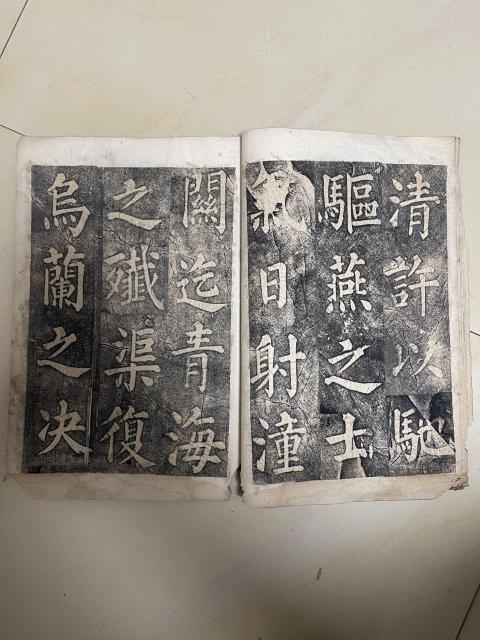 清許以馳
驅燕之士
日射潼
關迄青海
之殲渠復
烏蘭之决